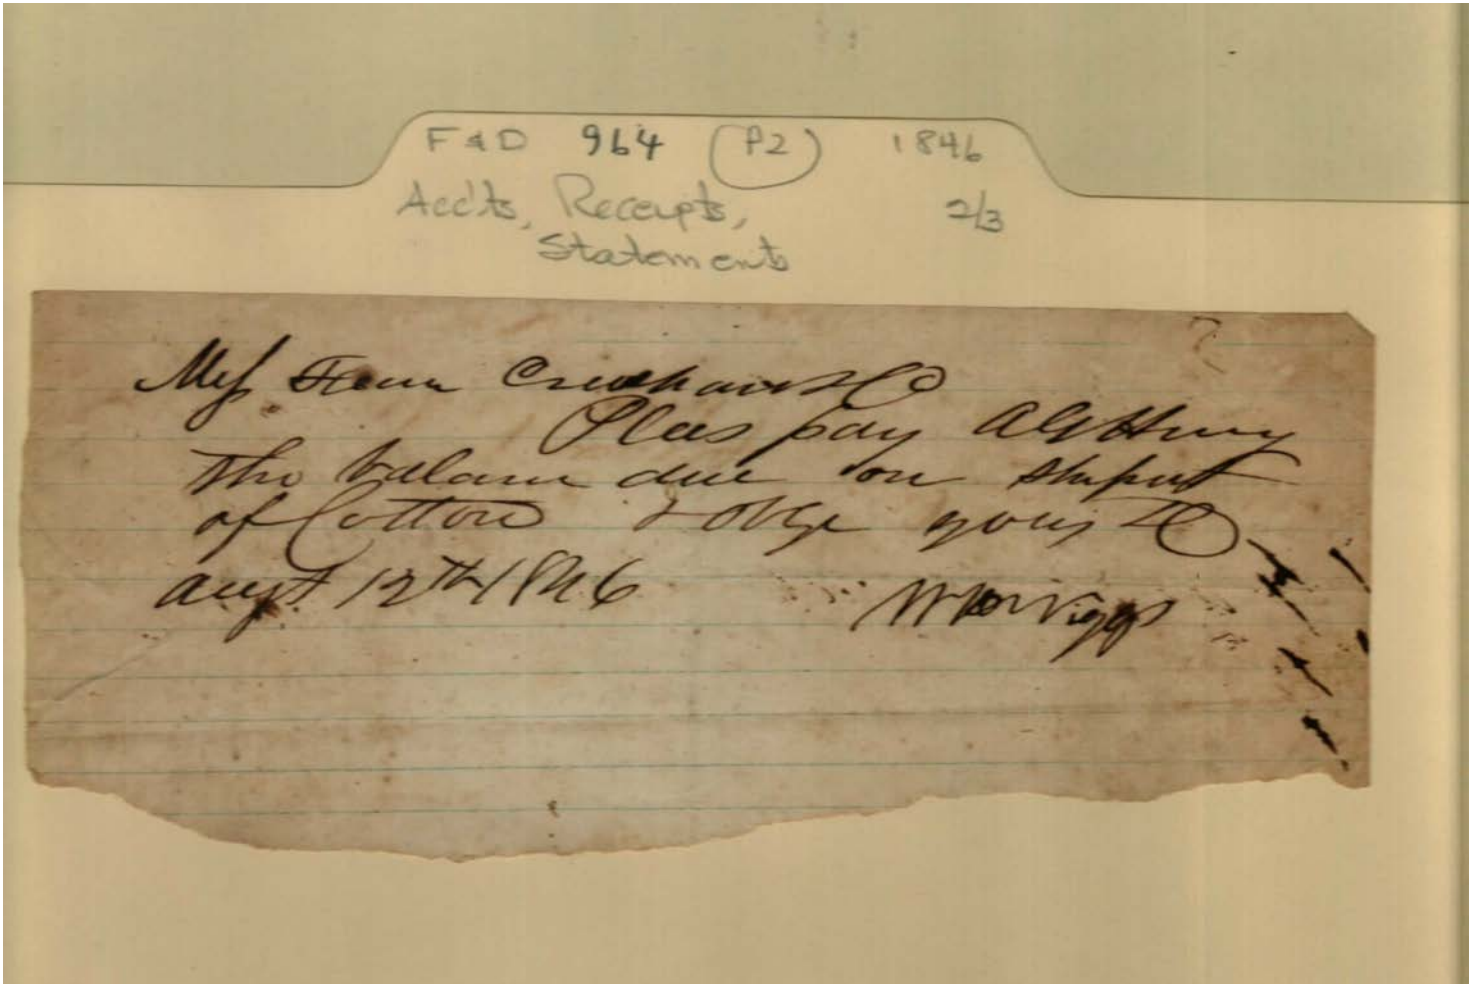 F & D 964 (P2) 1846
Acc'ts, Receipts, 2/3
Statements
Mess Fearn Crenshaw & Co
Pleas pay A G Henry
the balance due on shipmt
of Cotton & oblge yours &C
augt 12th 1846